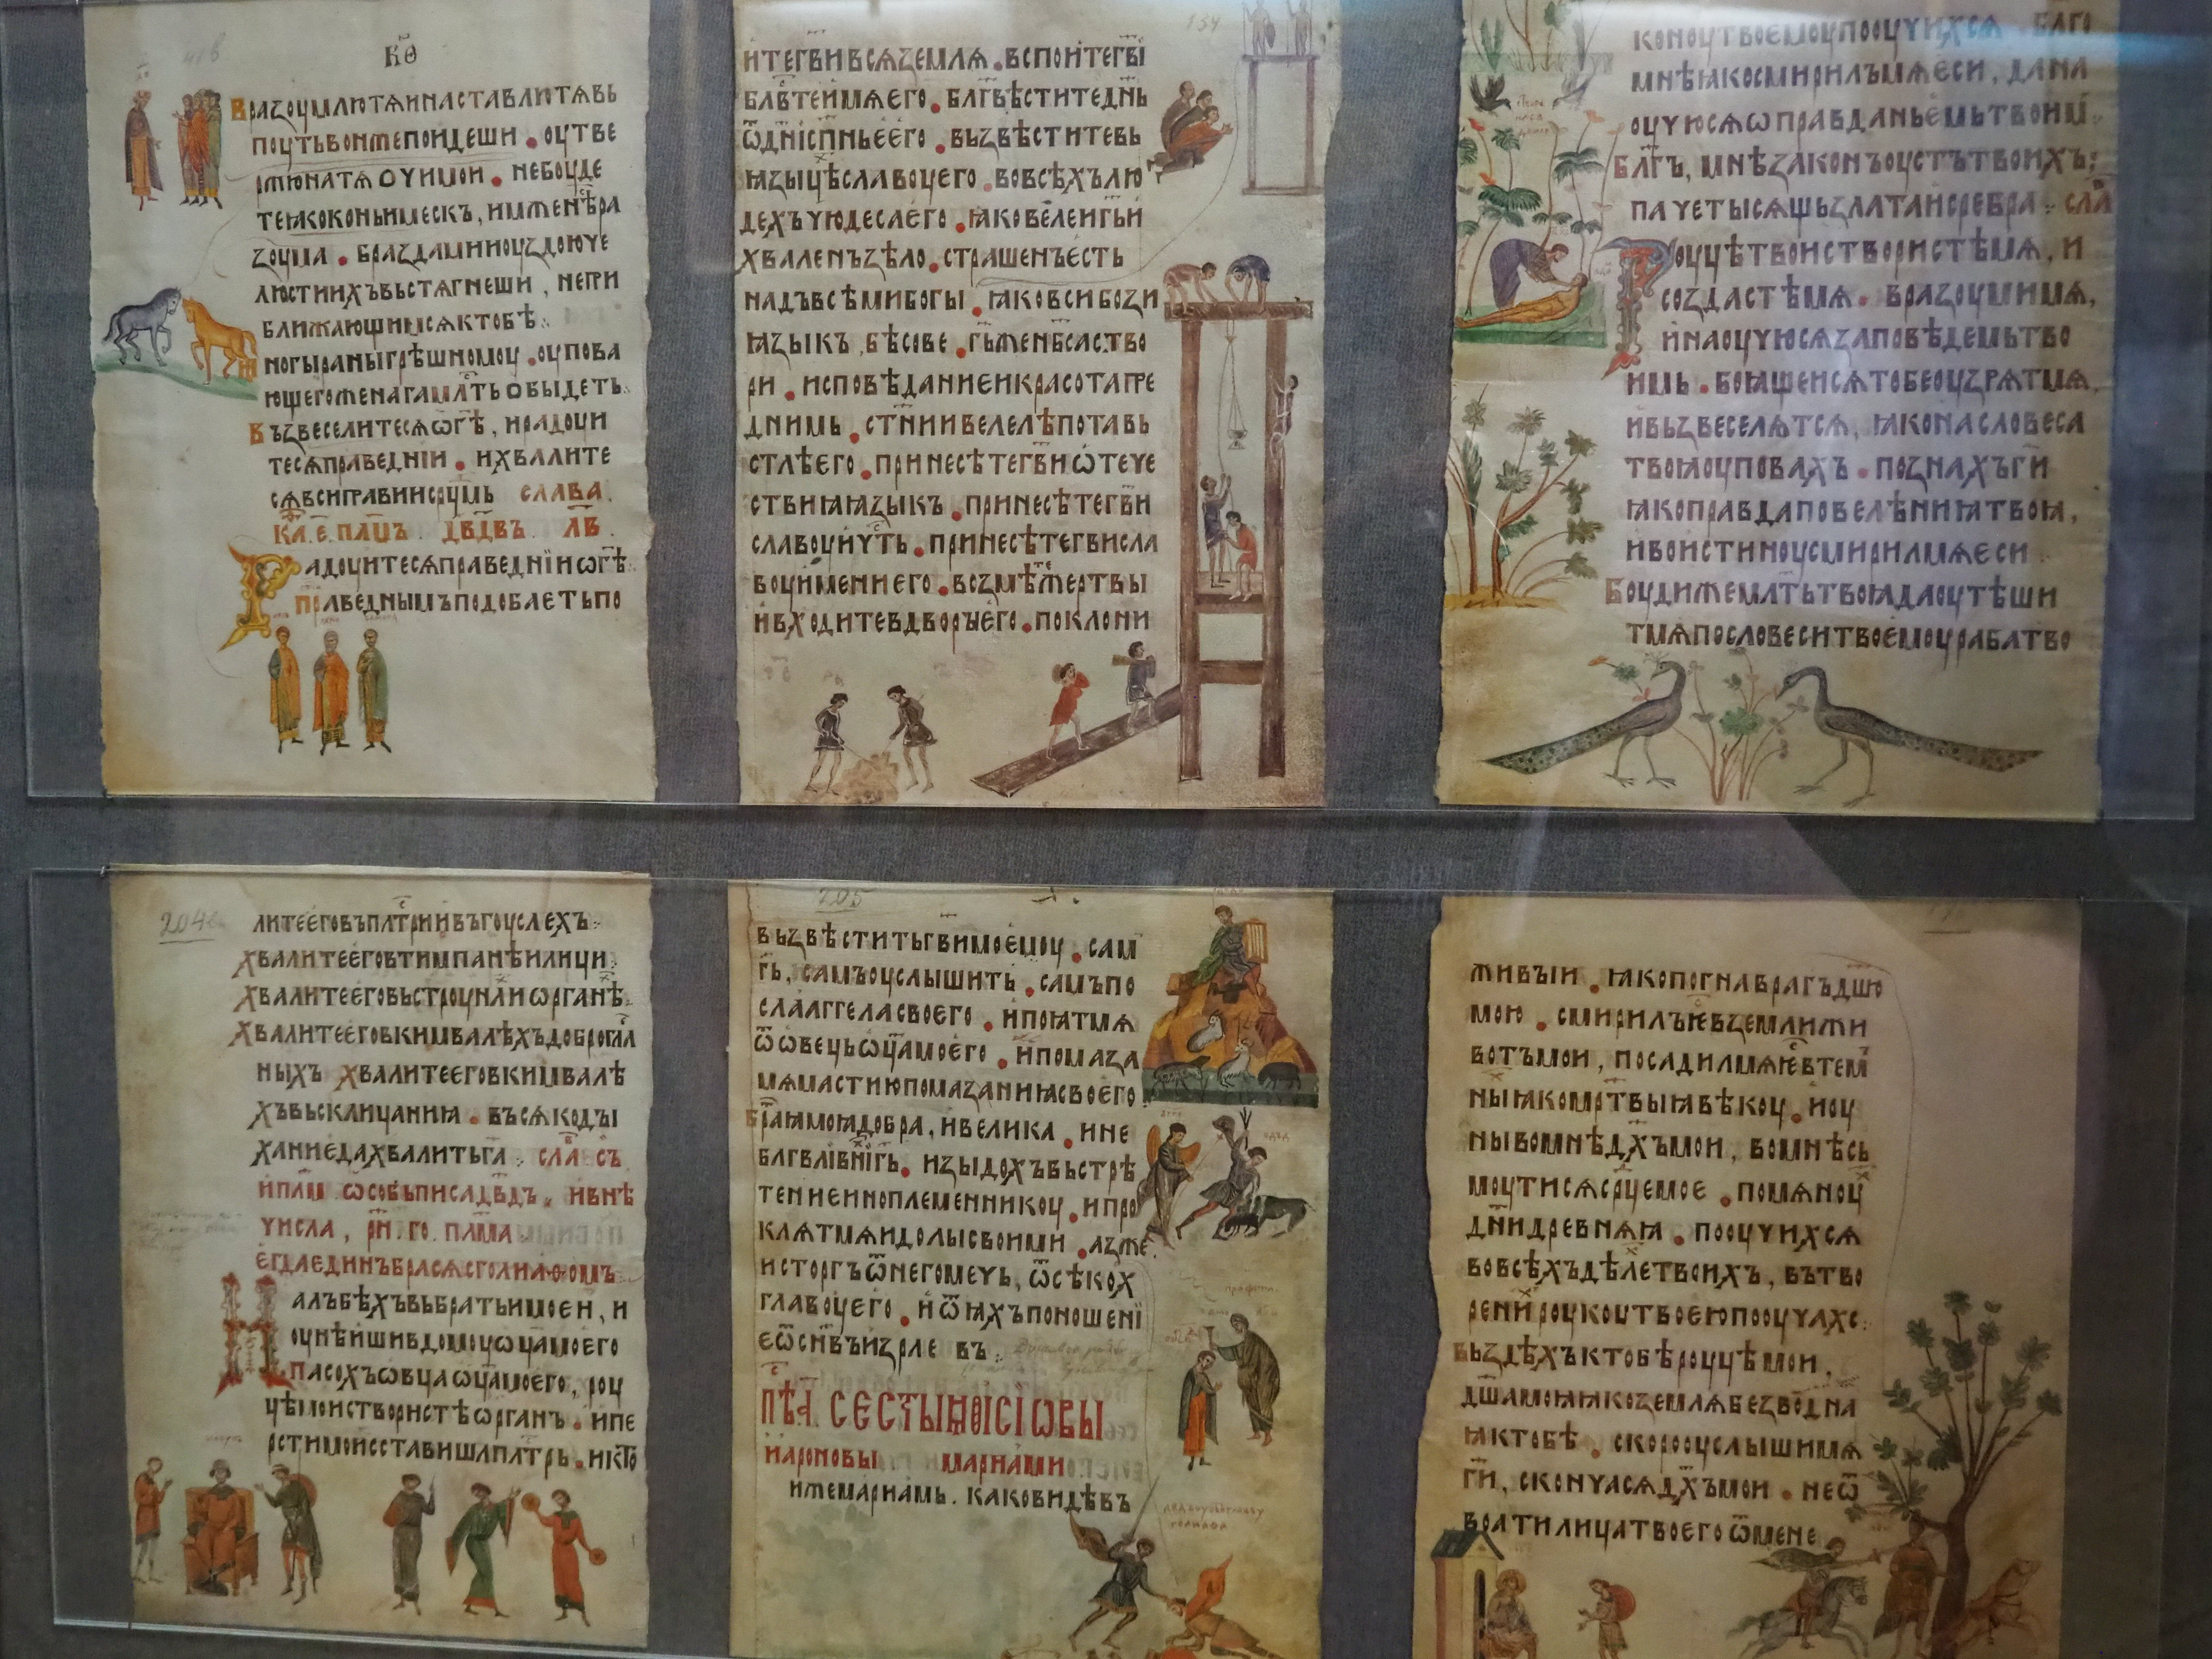 к҃ѳ
вразоумлютѧинаставлютѧвь
поутьвоньжепоидеши • оутве
ржюнатѧоүимои • небоуде
теꙗкоконьимескъ, имженѣ́ра
ꙁоума • браꙁдаминоуꙁдоюче
люстиихъвьстѧгнеши, непри
ближающимсѧктобѣ
ногыраныгрѣшномоу • оупова
ющегоженагамлⷭ҇тьобыдеть
въꙁвеселитесѧѡг҃ѣ, ирадоуи
тесѧправеднїи • ихвалите
сѧвсиправиисрⷣцмь слава
ка. е. пл҃мъ дв҃дв҃ъ л҃в
Радоуитесѧправеднїиѡг҃ѣ
правѣднымъподобаетьпо
154
и́тегв҃ивсѧꙁемлѧ • вспои́тегв҃ї
блг҃втеи́мѧего • блг҃вѣститеднь
ѿдн҃їсп҃ньее́го • въꙁвѣститевь
ꙗꙁыцѣславоуего • вовсѣхълю
дехъчюдесае́го • ꙗковеле́игь҃и́
хваленъꙁѣло • страшенъе́сть
надъвсѣмибогы • ꙗковсибоꙁи
ꙗꙁыкъ, бѣсове • гь҃женб҃сас҃тво
ри • исповѣданиеикрасотапре
днимь • ст҃ниивелелѣпотавь
стлѣего • принесѣтегв҃иѡ́тече
ствиꙗꙗꙁыкъ • принесѣтегв҃и
славоуи́чⷭ҇ть • принесѣтегвисла
воуи́мениего • воꙁмѣ́тежертвы
и́входитевдворыего • поклони
коноутвоемоупооучихсѧ благо
мнѣꙗкосмирилъмѧеси, дана
оучюсѧѡправданье́мьтвоим
бл҃гъ, мнѣꙁаконъоустътвоихъ
пачетысѧщьꙁлатаи́сребра сла
Роуцѣтвои́створистѣмѧ, и
соꙁдастѣмѧ • враꙁоумимѧ,
и́наоучюсѧꙁаповѣдемьтво
имь • боꙗщеисѧтобеоуꙁрѧтмѧ,
и́вьꙁвеселѧтсѧ, ꙗконасловеса
твоꙗоуповахъ • поꙁнахъг҃и
ꙗкоправдаповелѣниꙗтвоꙗ,
ивоистиноусмирилмѧеси
Боудижемлⷭ҇тьтвоꙗдаоутѣши
тмѧпословеситвоемоурабатво
204
литее́говъпл҃трииивъгоуслехъ
хвалитее́говтимпанѣилици
хвалитее́говьстроунахиѡрганѣ
хвалитее́говкимвалѣхъдоброгла
ныхъ хвалитее́говкимвалѣ
хъвьсклицаниꙗ • въсѧкоды
ханиедахвалитьга сла съ
и́пл҃м ѡсобьписадв҃дъ, и́внѣ
числа, рн҃. го. плма
е́гдаединъбрасѧсголиаѳомъ
Малъбѣхъвьбратьимоеи, и
оунѣи́шивдомоуѡц҃амоего
пасохъѡвцаѡц҃амоего, роу
цѣмоиствористѣѡрганъ • ипе
рстимоисставишапл҃трь • икто
205
вьꙁвѣститьгв҃имоемоу • сам
г҃ь, самъоуслышить • самъпо
слааггеласвоего • и́поꙗтмѧ
ѿѡвець ѡц҃амоего • и́помаꙁа
мѧмастиюпомаꙁаниꙗсвоего
бр҃аꙗмоꙗдобра, и́велика • ине
блгвл҃ївнигь • иꙁыдохъвьстрѣ
тениеиноплеменникоу • ипро
клѧтмѧидолысвоими • аꙁже
исторгъѿнегомечь, ѿсѣкох
главоуего • и́ѿꙗхъпоношені
еѿсн҃въи́ꙁрле въ
Пѣ҃ ꙗ҃ СЕСТЫ МОІСІѠВЫ
и́ароновы мариами
ижемариамь. каковидѣвъ
живыи • ꙗкопогнаврагъдшю
мою • смирилъѥ́вꙁемлижи
вотъмои, посадилмѧѥ́втем
ныꙗкомрт҃выꙗвѣкоу • и́оу
нывомнѣдх҃ъмои, вомнѣсь
моутисѧсрⷣцемое • помѧноух
дн҃идревнѧꙗ • пооучихсѧ
вовсѣхъдѣлетвоихъ, вътво
рении́роукоутвоеюпооучахс
вьꙁдѣхъктобѣроуцѣмои,
дш҃амоꙗꙗкоꙁемлѧбеꙁводна
ꙗктобѣ • скорооуслышимѧ
г҃и, скончасѧдх҃ъмои • неѿ
вратилицатвоегоѿмене